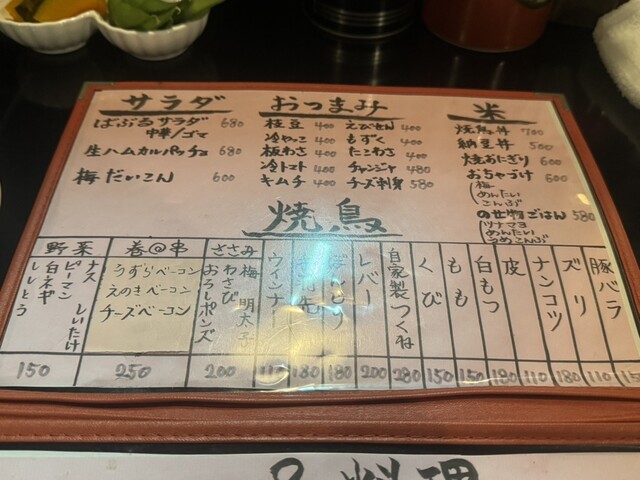 サラダ
ばぶるサラダ 680
中華/ゴマ
生ハムカルパッチョ 680
梅だいこん 600
おつまみ
枝豆 400
冷やっこ 400
板わさ 400
冷トマト 400
キムチ 400
えびせん 400
もずく 400
たこわさ 400
チャンジャ 480
チーズ刺身 580
米
焼鳥丼 700
納豆丼 500
焼おにぎり 600
おちゃづけ 600
梅
めんたい
こんぶ
のせ物ごはん 580
ツナマヨ
めんたい
うめこんぶ
焼鳥
豚バラ 150
ズリ 110
ナンコツ 180
皮 110
白もつ 180
もも 150
くび 150
自家製つくね 280
レバー 200
ぼんじり 180
180
ウインナー 110
ささみ
梅 明太子
わさび
おろしポンズ
200
巻@串
うずらベーコン
えのきベーコン
チーズベーコン
250
野菜
ナス しいたけ
ピーマン
白ネギ
ししとう
150
料理